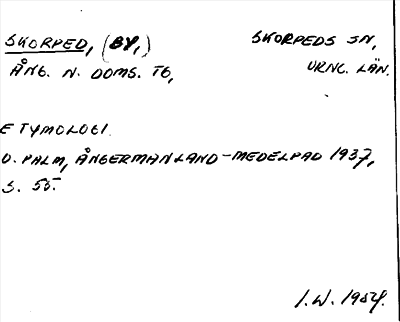 SKORPED, (BY,) SKORPEDS SN,
ÅNG. N. DOMS. TG, URNC. LÄN.
ETYMOLOGI.
D. PALM, ÅNGERMANLAND-MEDELPAD 1937,
S. 55.
I.W. 1954.